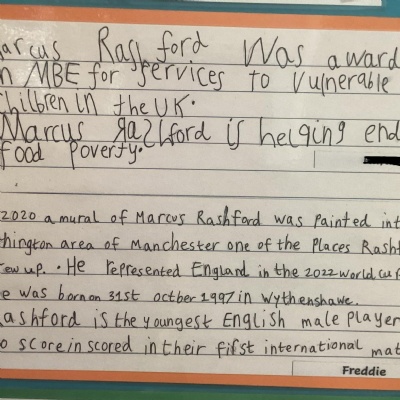 arcus Rashford Was award
n MBE for services to Vulnerable
Children in the UK.
Marcus Rashford is helging end
food poverty.
2020 a mural of Marcus Rashford was Painted int
thington area of Manchester one of the Places Rashf
rew up. He represented England in the 2022 world cup
e was born on 31st octber 1997 in Wythenshawe.
ashford is the youngest English male Player
o score in scored in their first international mat
Freddie